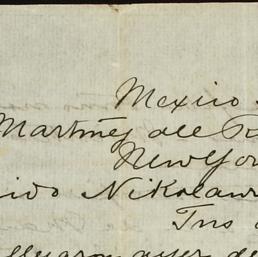 Mexico
Martinez del R
New Yor
ido Nikolaus
Tus
llegaron ayer de